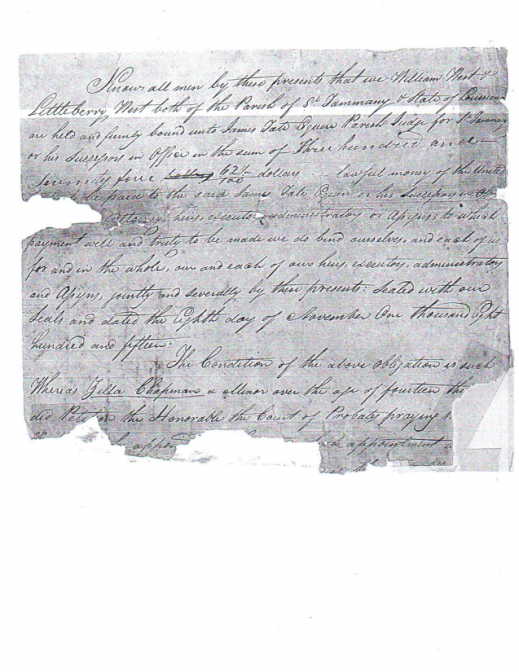 Know all men by these presents that we William West &
Littleberry West both of the Parish of St Tammany & State of Louisiana
are held and firmly bound unto James Tate Esquire Parish Judge for St Tammany
or his Successors in Office in the sum of Three hundred and
Seventy five 62½/100 dollars lawful money of the United
be paid to the said James Tate Esquire or his Successors in
Attorney, heirs executors administrators or Assigns to which
payment well and truly to be made we do bind ourselves, and each of us
for and in the whole, our and each of our heirs, executors, administrators
and Assigns, jointly and severally by these presents: Sealed with our
Seals and dated the Eighth day of November One thousand Eight
hundred and fifteen.
The Condition of the above obligation is such
Whereas Zilla Chapman a minor over the age of fourteen
did Petition the Honorable the Court of Probates praying
appointment